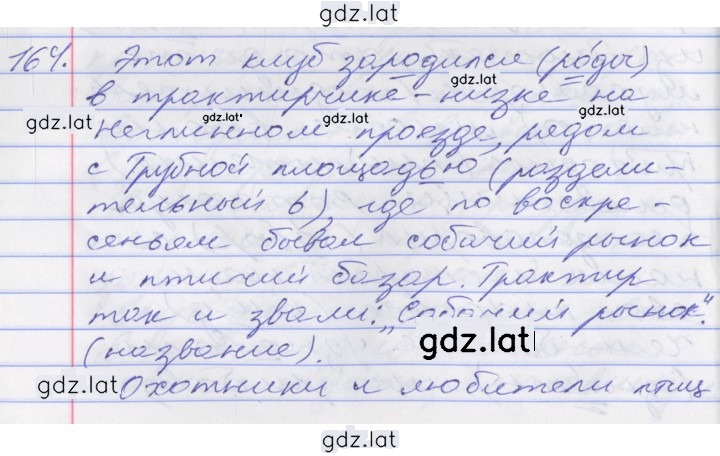 gdz.lat
164. Этот клуб зародился (ро́ды)
gdz.lat
в трактирчике-низке на
gdz.lat gdz.lat gdz.lat
Неглинном проезде, рядом
с Трубной площадью (раздели-
тельный ь), где по воскре-
сеньям бывал собачий рынок
и птичий базар. Трактир
так и звали: „Собачий рынок".
(название). gdz.lat
gdz.lat Охотники и любители птиц
gdz.lat